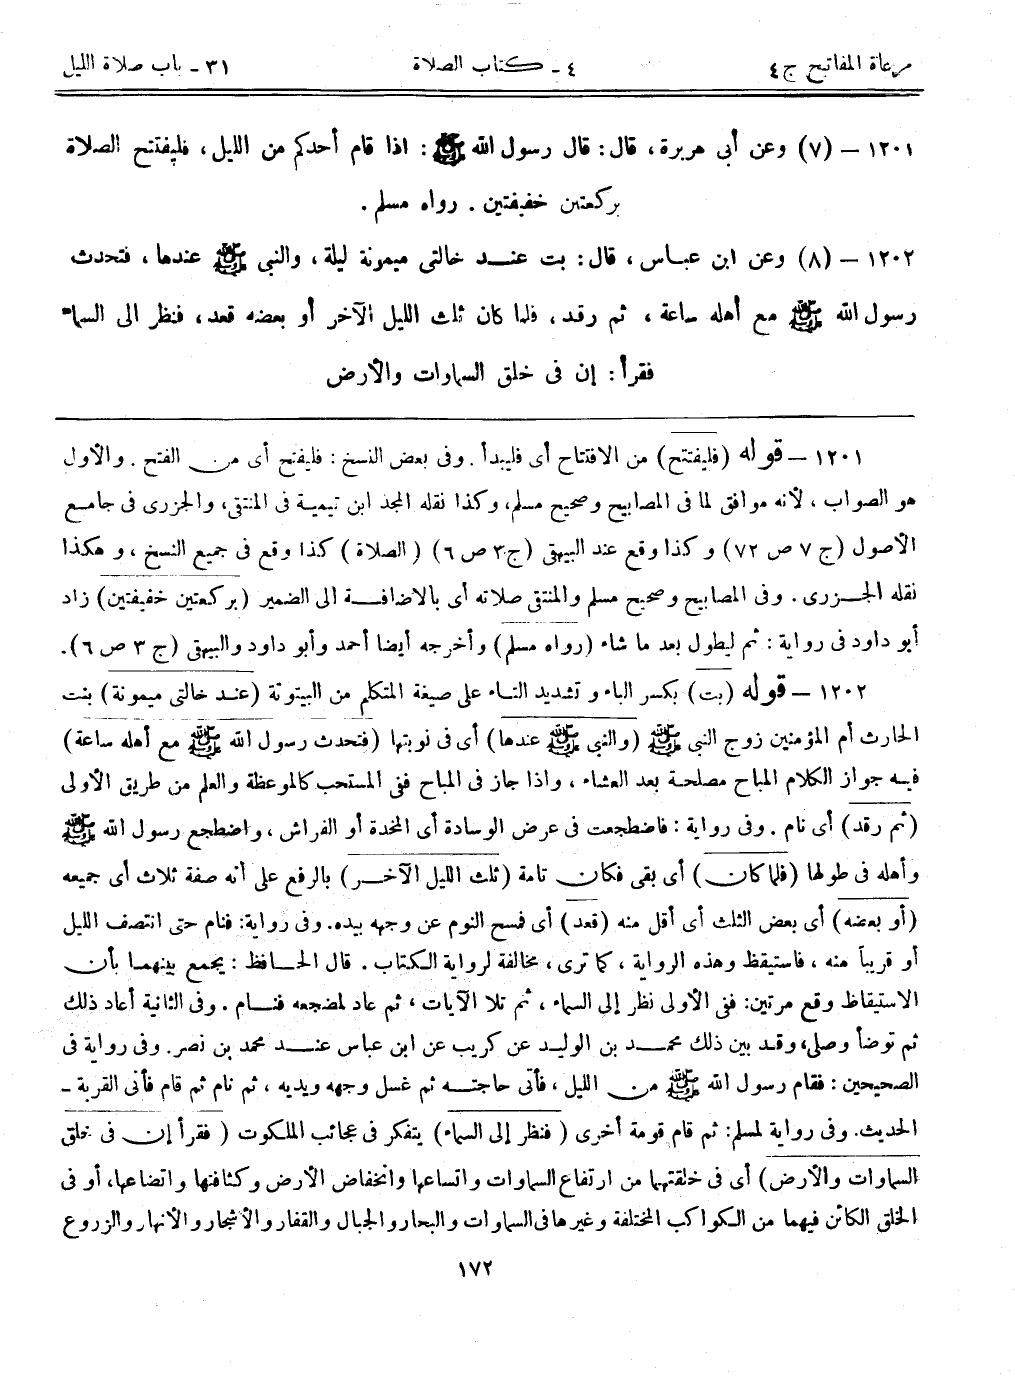 مرعاة المفاتيح ج ٤ ٤ ـ كتاب الصلاة ٣١ ـ باب صلاة الليل
١٢٠١ – (٧) وعن أبى هريرة، قال: قال رسول الله ﷺ: اذا قام أحدكم من الليل، فليفتتح الصلاة
بركعتين خفيفتين. رواه مسلم.
١٢٠٢ – (٨) وعن ابن عباس، قال: بت عند خالتى ميمونة ليلة، والنبى ﷺ عندها، فتحدث
رسول الله ﷺ مع أهله ساعة، ثم رقد، فلما كان ثلث الليل الآخر أو بعضه قعد، فنظر الى السماء
فقرأ: إن فى خلق السماوات والأرض
١٢٠١ – قوله (فليفتتح) من الافتتاح أى فليبدأ. وفى بعض النسخ: فليفتح أى من الفتح. والأول
هو الصواب، لأنه موافق لما فى المصابيح وصحيح مسلم، وكذا نقله المجد ابن تيمية فى المنتقى، والجزرى فى جامع
الأصول (ج ٧ ص ٧٢) وكذا وقع عند البيهقى (ج ٣ ص ٦) (الصلاة) كذا وقع فى جميع النسخ، وهكذا
نقله الجزرى. وفى المصابيح وصحيح مسلم والمنتقى صلاته أى بالاضافة الى الضمير (بركعتين خفيفتين) زاد
أبو داود فى رواية: ثم ليطول بعد ما شاء (رواه مسلم) وأخرجه أيضا أحمد وأبو داود والبيهقى (ج ٣ ص ٦).
١٢٠٢ – قوله (بت) بكسر الباء وتشديد التاء على صيغة المتكلم من البيتوتة (عند خالتى ميمونة) بنت
الحارث أم المؤمنين زوج النبى ﷺ (والنبى ﷺ عندها) أى فى نوبتها (فتحدث رسول الله ﷺ مع أهله ساعة)
فيه جواز الكلام المباح مصلحة بعد العشاء، واذا جاز فى المباح ففى المستحب كالموعظة والعلم من طريق الأولى
(ثم رقد) أى نام. وفى رواية: فاضطجعت فى عرض الوسادة أى المخدة أو الفراش، واضطجع رسول الله ﷺ
وأهله فى طولها (فلما كان) أى بقى فكان تامة (ثلث الليل الآخر) بالرفع على أنه صفة ثلاث أى جميعه
(أو بعضه) أى بعض الثلث أى أقل منه (قعد) أى فمسح النوم عن وجهه بيده. وفى رواية: فنام حتى انتصف الليل
أو قريباً منه، فاستيقظ وهذه الرواية، كما ترى، مخالفة لرواية الكتاب. قال الحافظ: يجمع بينهما بأن
الاستيقاظ وقع مرتين: ففى الأولى نظر إلى السماء، ثم تلا الآيات، ثم عاد لمضجعه فنام. وفى الثانية أعاد ذلك
ثم توضأ وصلى، وقد بين ذلك محمد بن الوليد عن كريب عن ابن عباس عند محمد بن نصر. وفى رواية فى
الصحيحين: فقام رسول الله ﷺ من الليل، فأتى حاجته ثم غسل وجهه ويديه، ثم نام ثم قام فأتى القربة ـ
الحديث. وفى رواية لمسلم: ثم قام قومة أخرى (فنظر إلى السماء) يتفكر فى عجائب الملكوت (فقرأ إن فى خلق
السماوات والأرض) أى فى خلقتهما من ارتفاع السماوات واتساعها وانخفاض الأرض وكثافتها واتضاعها، أو فى
الخلق الكائن فيهما من الكواكب المختلفة وغيرها فى السماوات والبحار والجبال والقفار والأشجار والأنهار والزروع
١٧٢